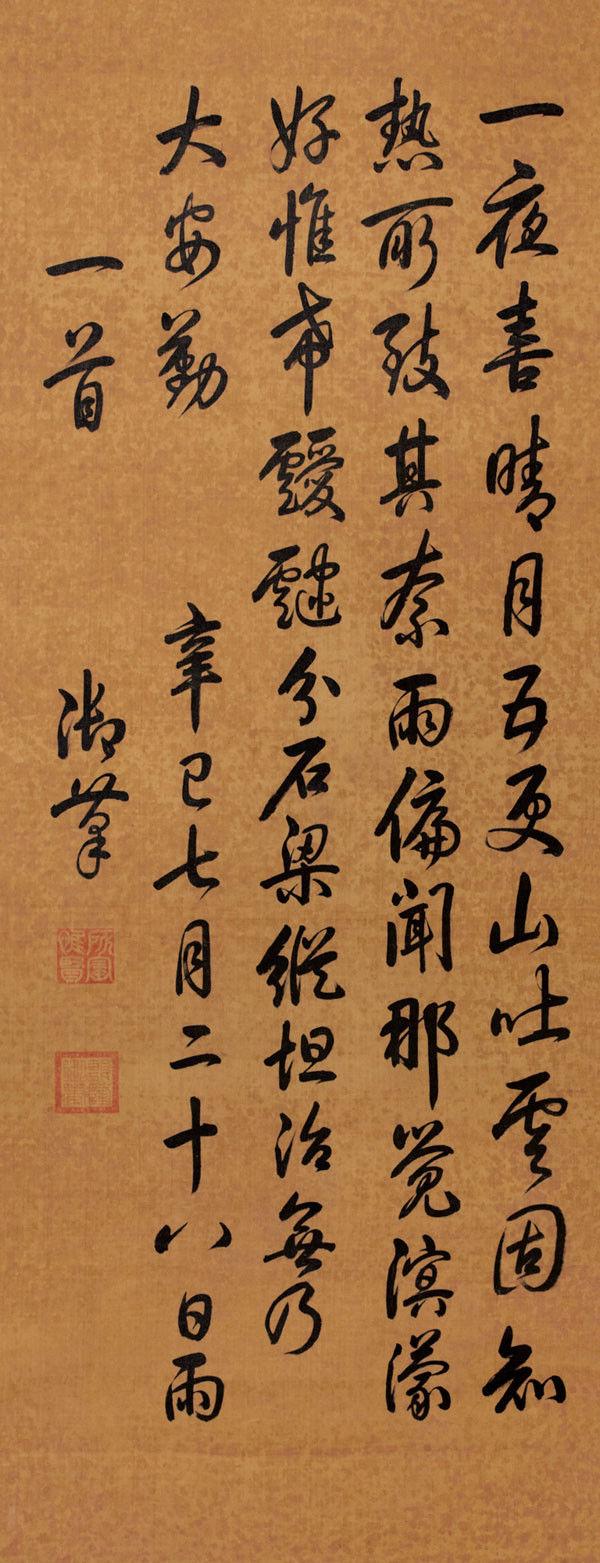 一夜喜晴月五更山吐雲固知
熱所致其奈雨偏聞那覺溟濛
好惟希靉靆分石梁縱坦治無乃
大安勤 辛巳七月二十八日雨
一首 御筆
所寶惟賢